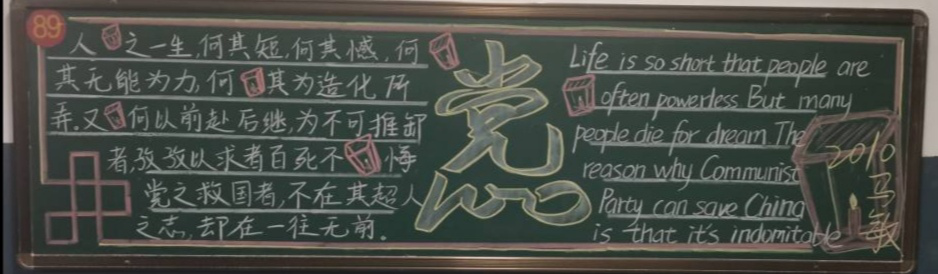 89
人之一生,何其短,何其憾,何
其无能为力,何其为造化所
弄.又何以前赴后继,为不可推卸
者,孜孜以求者百死不悔
党之救国者,不在其超人
之志,却在一往无前.
党
100
Life is so short that people are
often powerless But many
people die for dream The
reason why Communist
Party can save China
is that it's indomitable
2010
马
敏